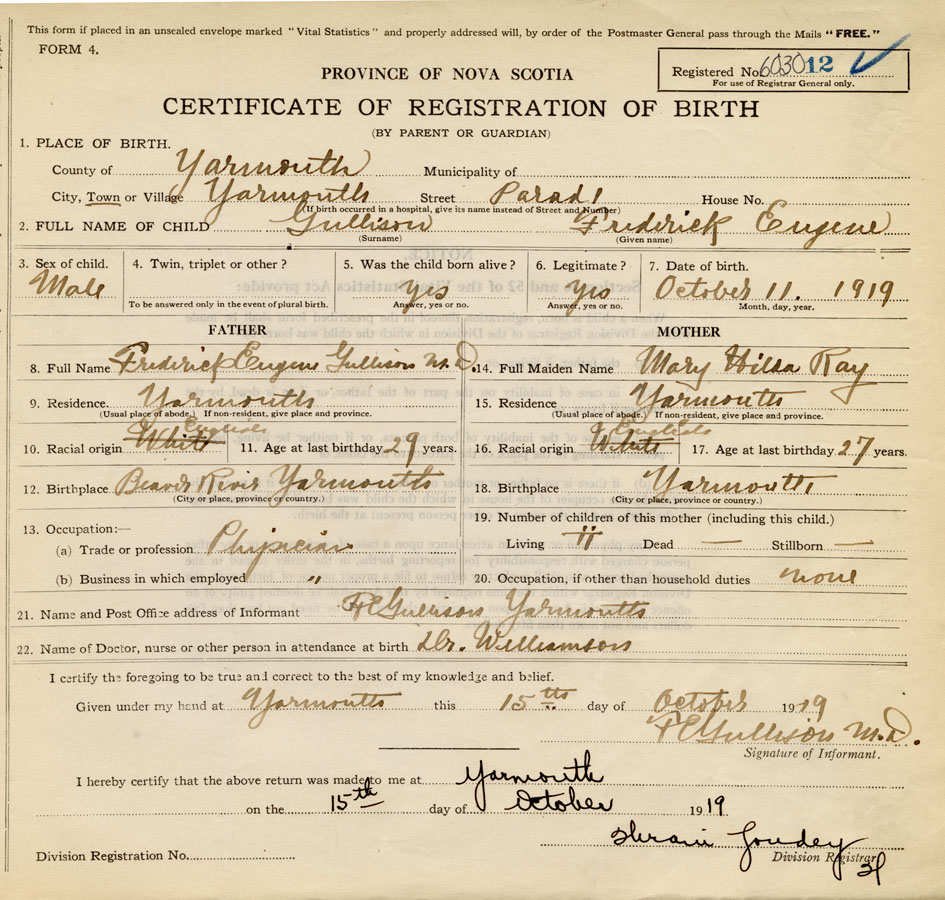 This form if placed in an unsealed envelope marked "Vital Statistics" and properly addressed will, by order of the Postmaster General pass through the Mails "FREE."
FORM 4.
Registered No. 603012
For use of Registrar General only.
PROVINCE OF NOVA SCOTIA
CERTIFICATE OF REGISTRATION OF BIRTH
(BY PARENT OR GUARDIAN)
1. PLACE OF BIRTH.
County of Yarmouth Municipality of
City, Town or Village Yarmouth Street Parad House No.
(If birth occurred in a hospital, give its name instead of Street and Number)
2. FULL NAME OF CHILD Gullison Frederick Eugene
(Surname) (Given name)
3. Sex of child. 4. Twin, triplet or other? 5. Was the child born alive? 6. Legitimate? 7. Date of birth.
Male yes yes October 11. 1919
To be answered only in the event of plural birth. Answer, yes or no. Answer, yes or no. Month, day, year.
FATHER MOTHER
8. Full Name Frederick Eugene Gullison M.D. 14. Full Maiden Name Mary Hilda Ray
9. Residence. Yarmouth 15. Residence Yarmouth
(Usual place of abode.) If non-resident, give place and province. (Usual place of abode.) If non-resident, give place and province.
English English
10. Racial origin White 11. Age at last birthday 29 years. 16. Racial origin White 17. Age at last birthday 27 years.
12. Birthplace Beaver River Yarmouth 18. Birthplace Yarmouth
(City or place, province or country.) (City or place, province or country.)
13. Occupation:— 19. Number of children of this mother (including this child.)
(a) Trade or profession Physician Living Dead — Stillborn —
(b) Business in which employed " 20. Occupation, if other than household duties none
21. Name and Post Office address of Informant FE Gullison Yarmouth
22. Name of Doctor, nurse or other person in attendance at birth Dr. Williamson
I certify the foregoing to be true and correct to the best of my knowledge and belief.
Given under my hand at Yarmouth this 15th day of October 1919
FE Gullison M.D.
Signature of Informant.
I hereby certify that the above return was made to me at Yarmouth
on the 15th day of October 1919
Goudey
Division Registration No. Division Registrar